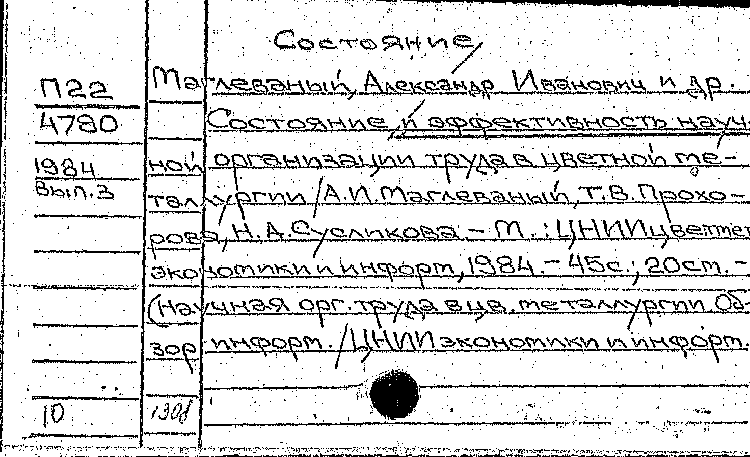 Состояние
П22 Маглеваный, Александр Иванович и др.
4780 Состояние и эффективность науч-
1984 ной организации труда в цветной ме-
Вып.3 таллургии / А.И.Маглеваный, Т.В.Прохо-
рова, Н.А.Сусликова. – М.: ЦНИИцветмет
экономики и информ., 1984. – 45с.; 20см. –
(Научная орг. труда в цв. металлургии. Об-
зор. информ. / ЦНИИ экономики и информ.
10